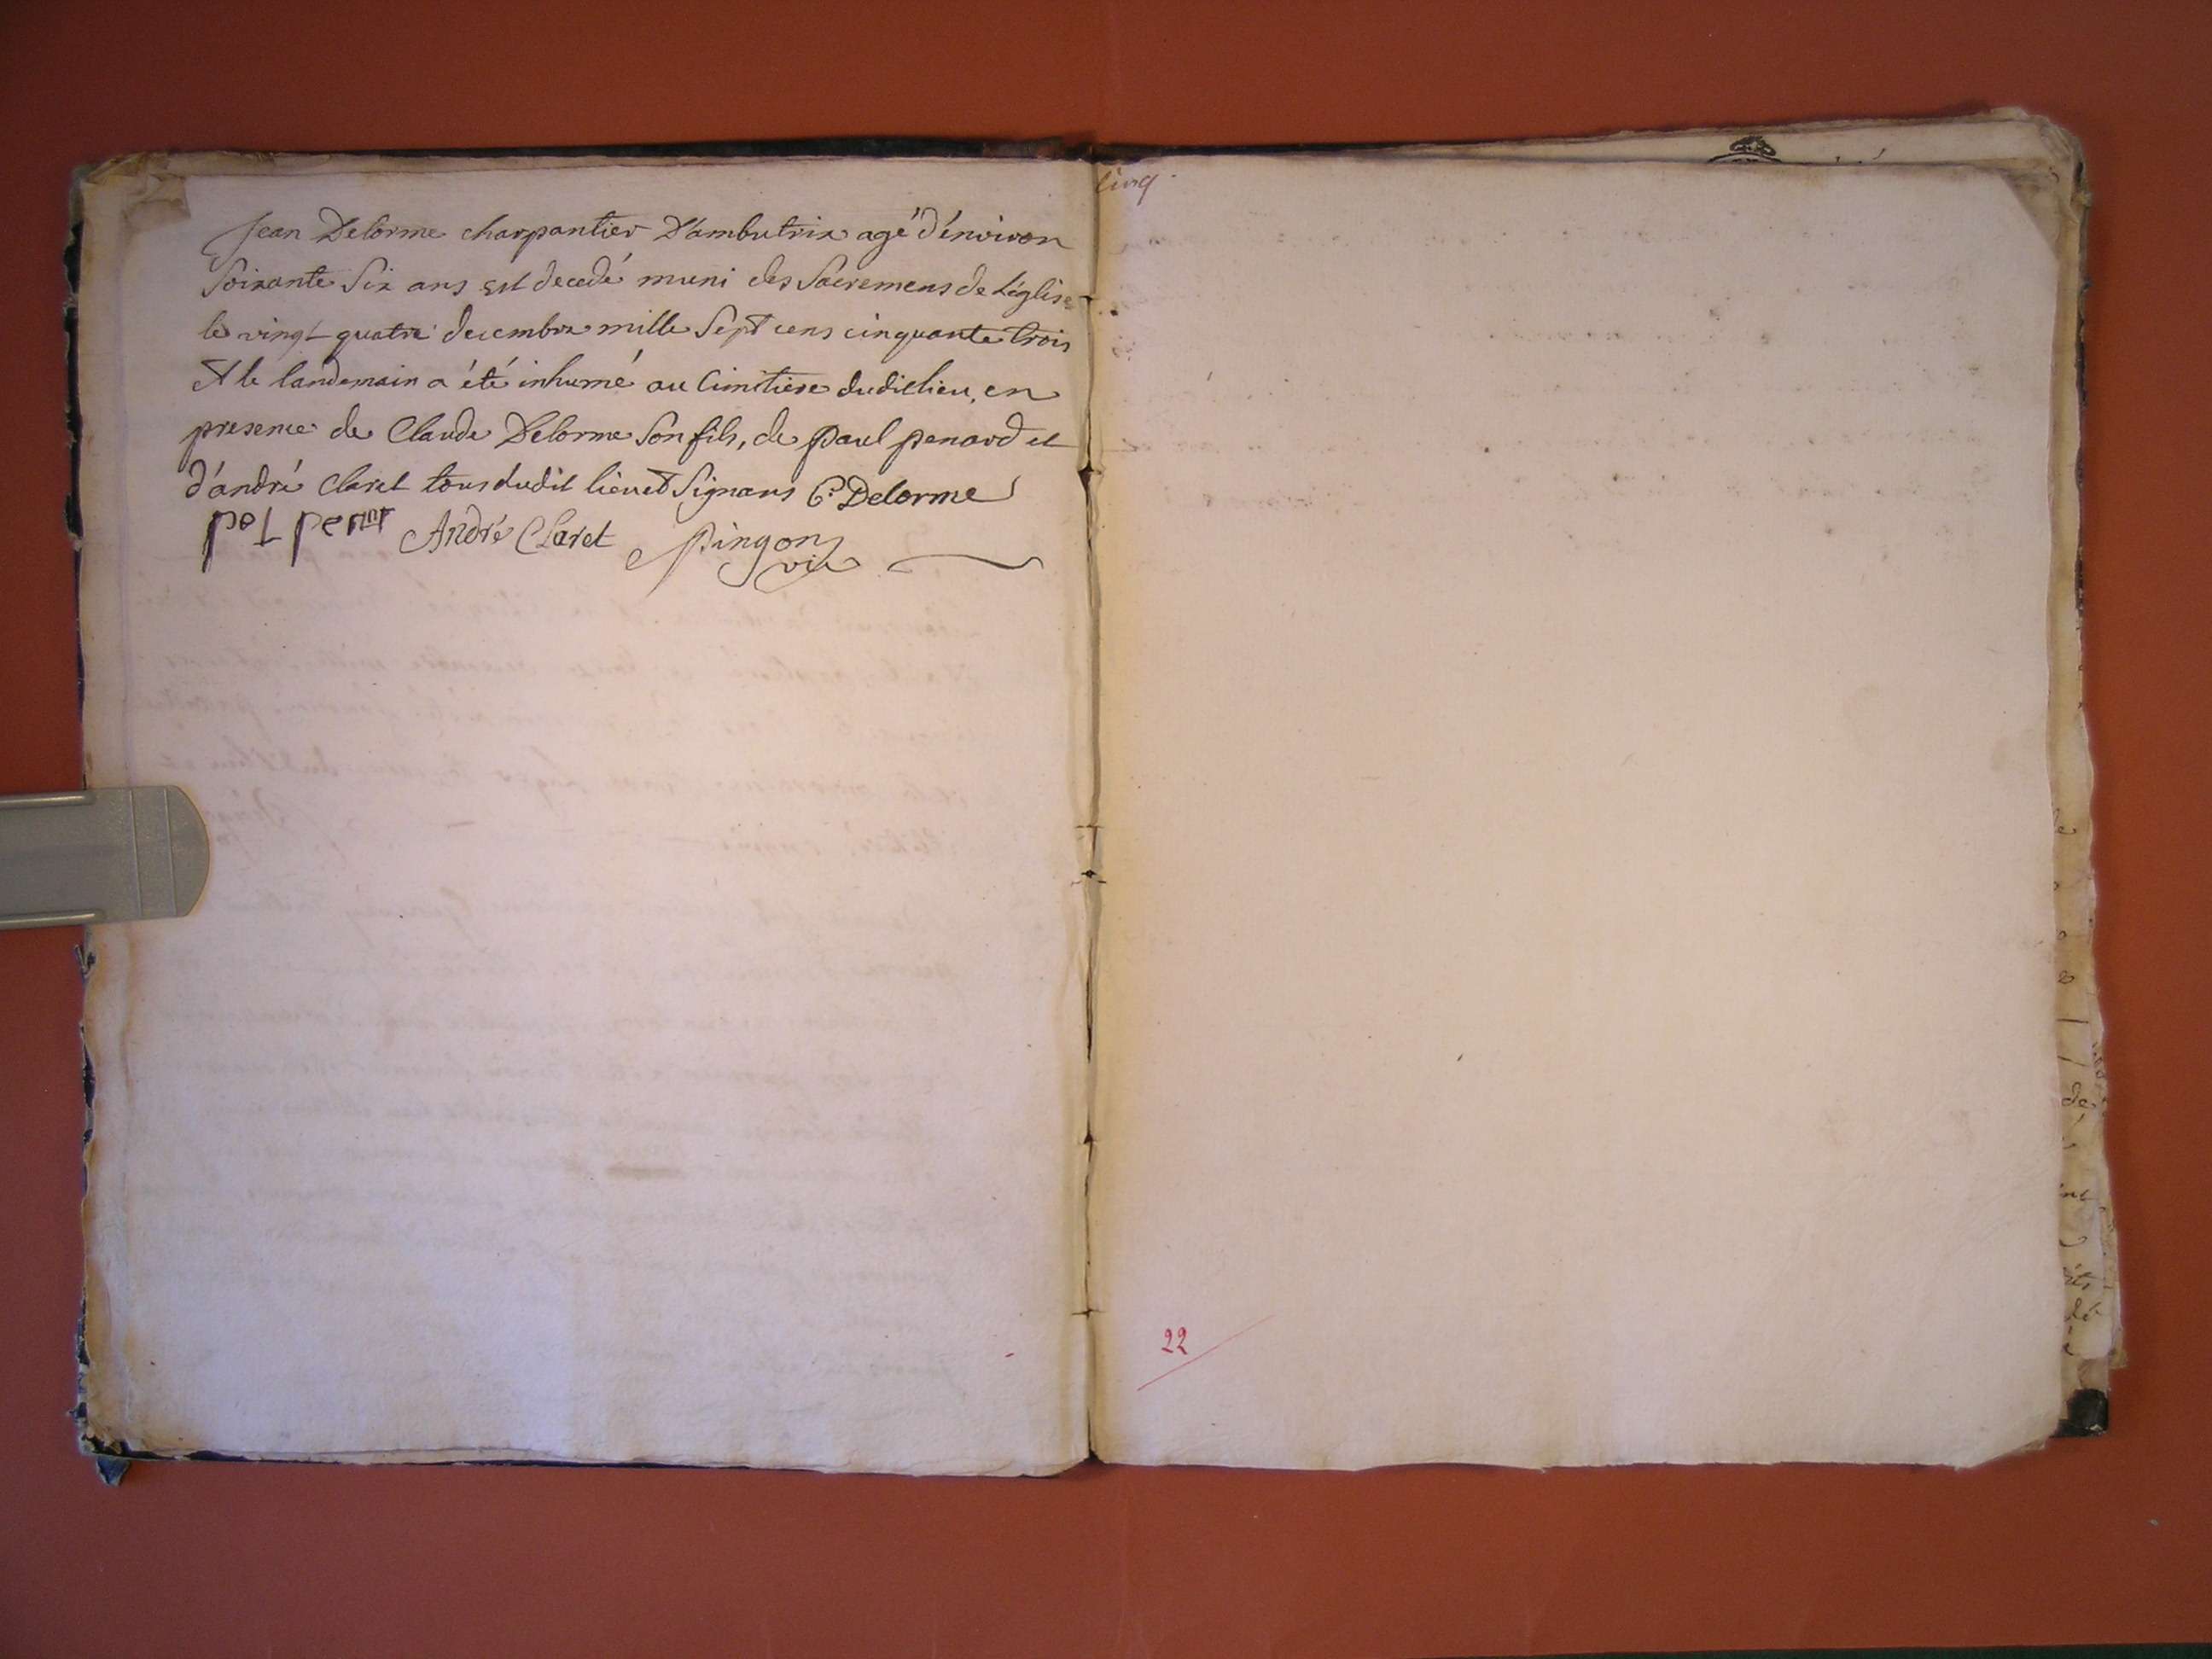 Jean Delorme charpantier D'ambutrix agé d'énviron
Soixante Six ans est decedé muni des Sacremens de Léglise
le vingt quatre decembre mille Sept cens cinquante trois
Et le landemain a été inhumé au Cimitiere dudit lieu, en
presence de Claude Delorme Son fils, de paul penard et
d'andré Claret tous dudit lieu et Signans C. Delorme
pol penar André Claret Pingon
vic
cinq
22